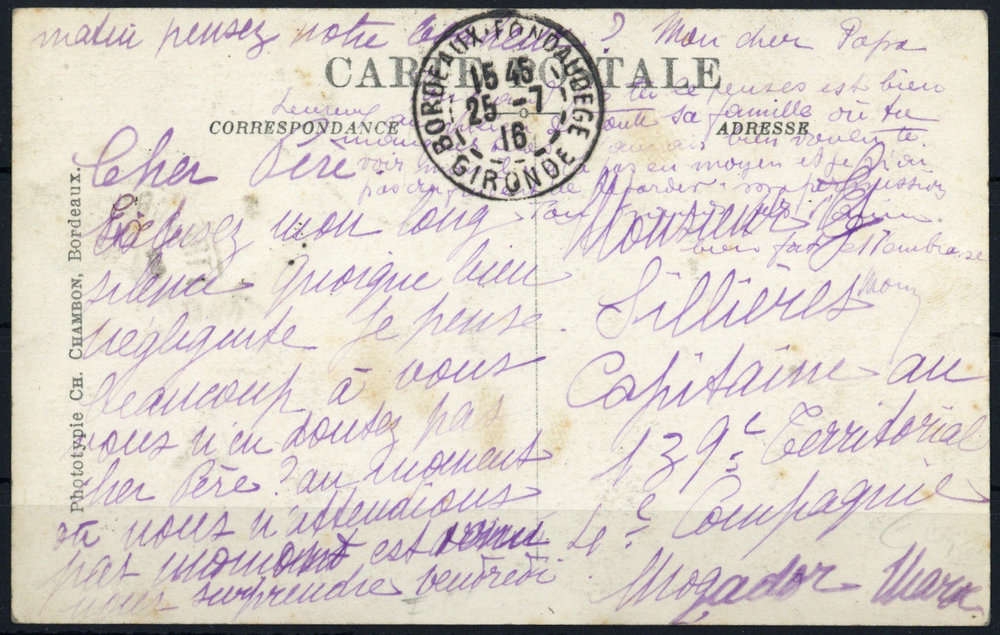 matin pensez notre ? Mon cher Papa
CARTE POSTALE
tu penses est bien
toute sa famille où tu
CORRESPONDANCE
ADRESSE
bien contente.
voir pas eu moyen et je n'ai
pas permission
bien fort et t'embrasse
BORDEAUX-FONDAUDEGE
15 45
25 - 7
16
GIRONDE
Cher Père
Excusez mon long
silence quoique bien
négligente je pense
beaucoup à vous
vous n'en doutez pas
cher Père ? au moment
où nous n'attendions
pas est venu
nous surprendre vendredi
Monsieur
Sillières
Capitaine au
139e Territorial
4e Compagnie
Mogador Maroc
Phototypie CH. CHAMBON, Bordeaux.